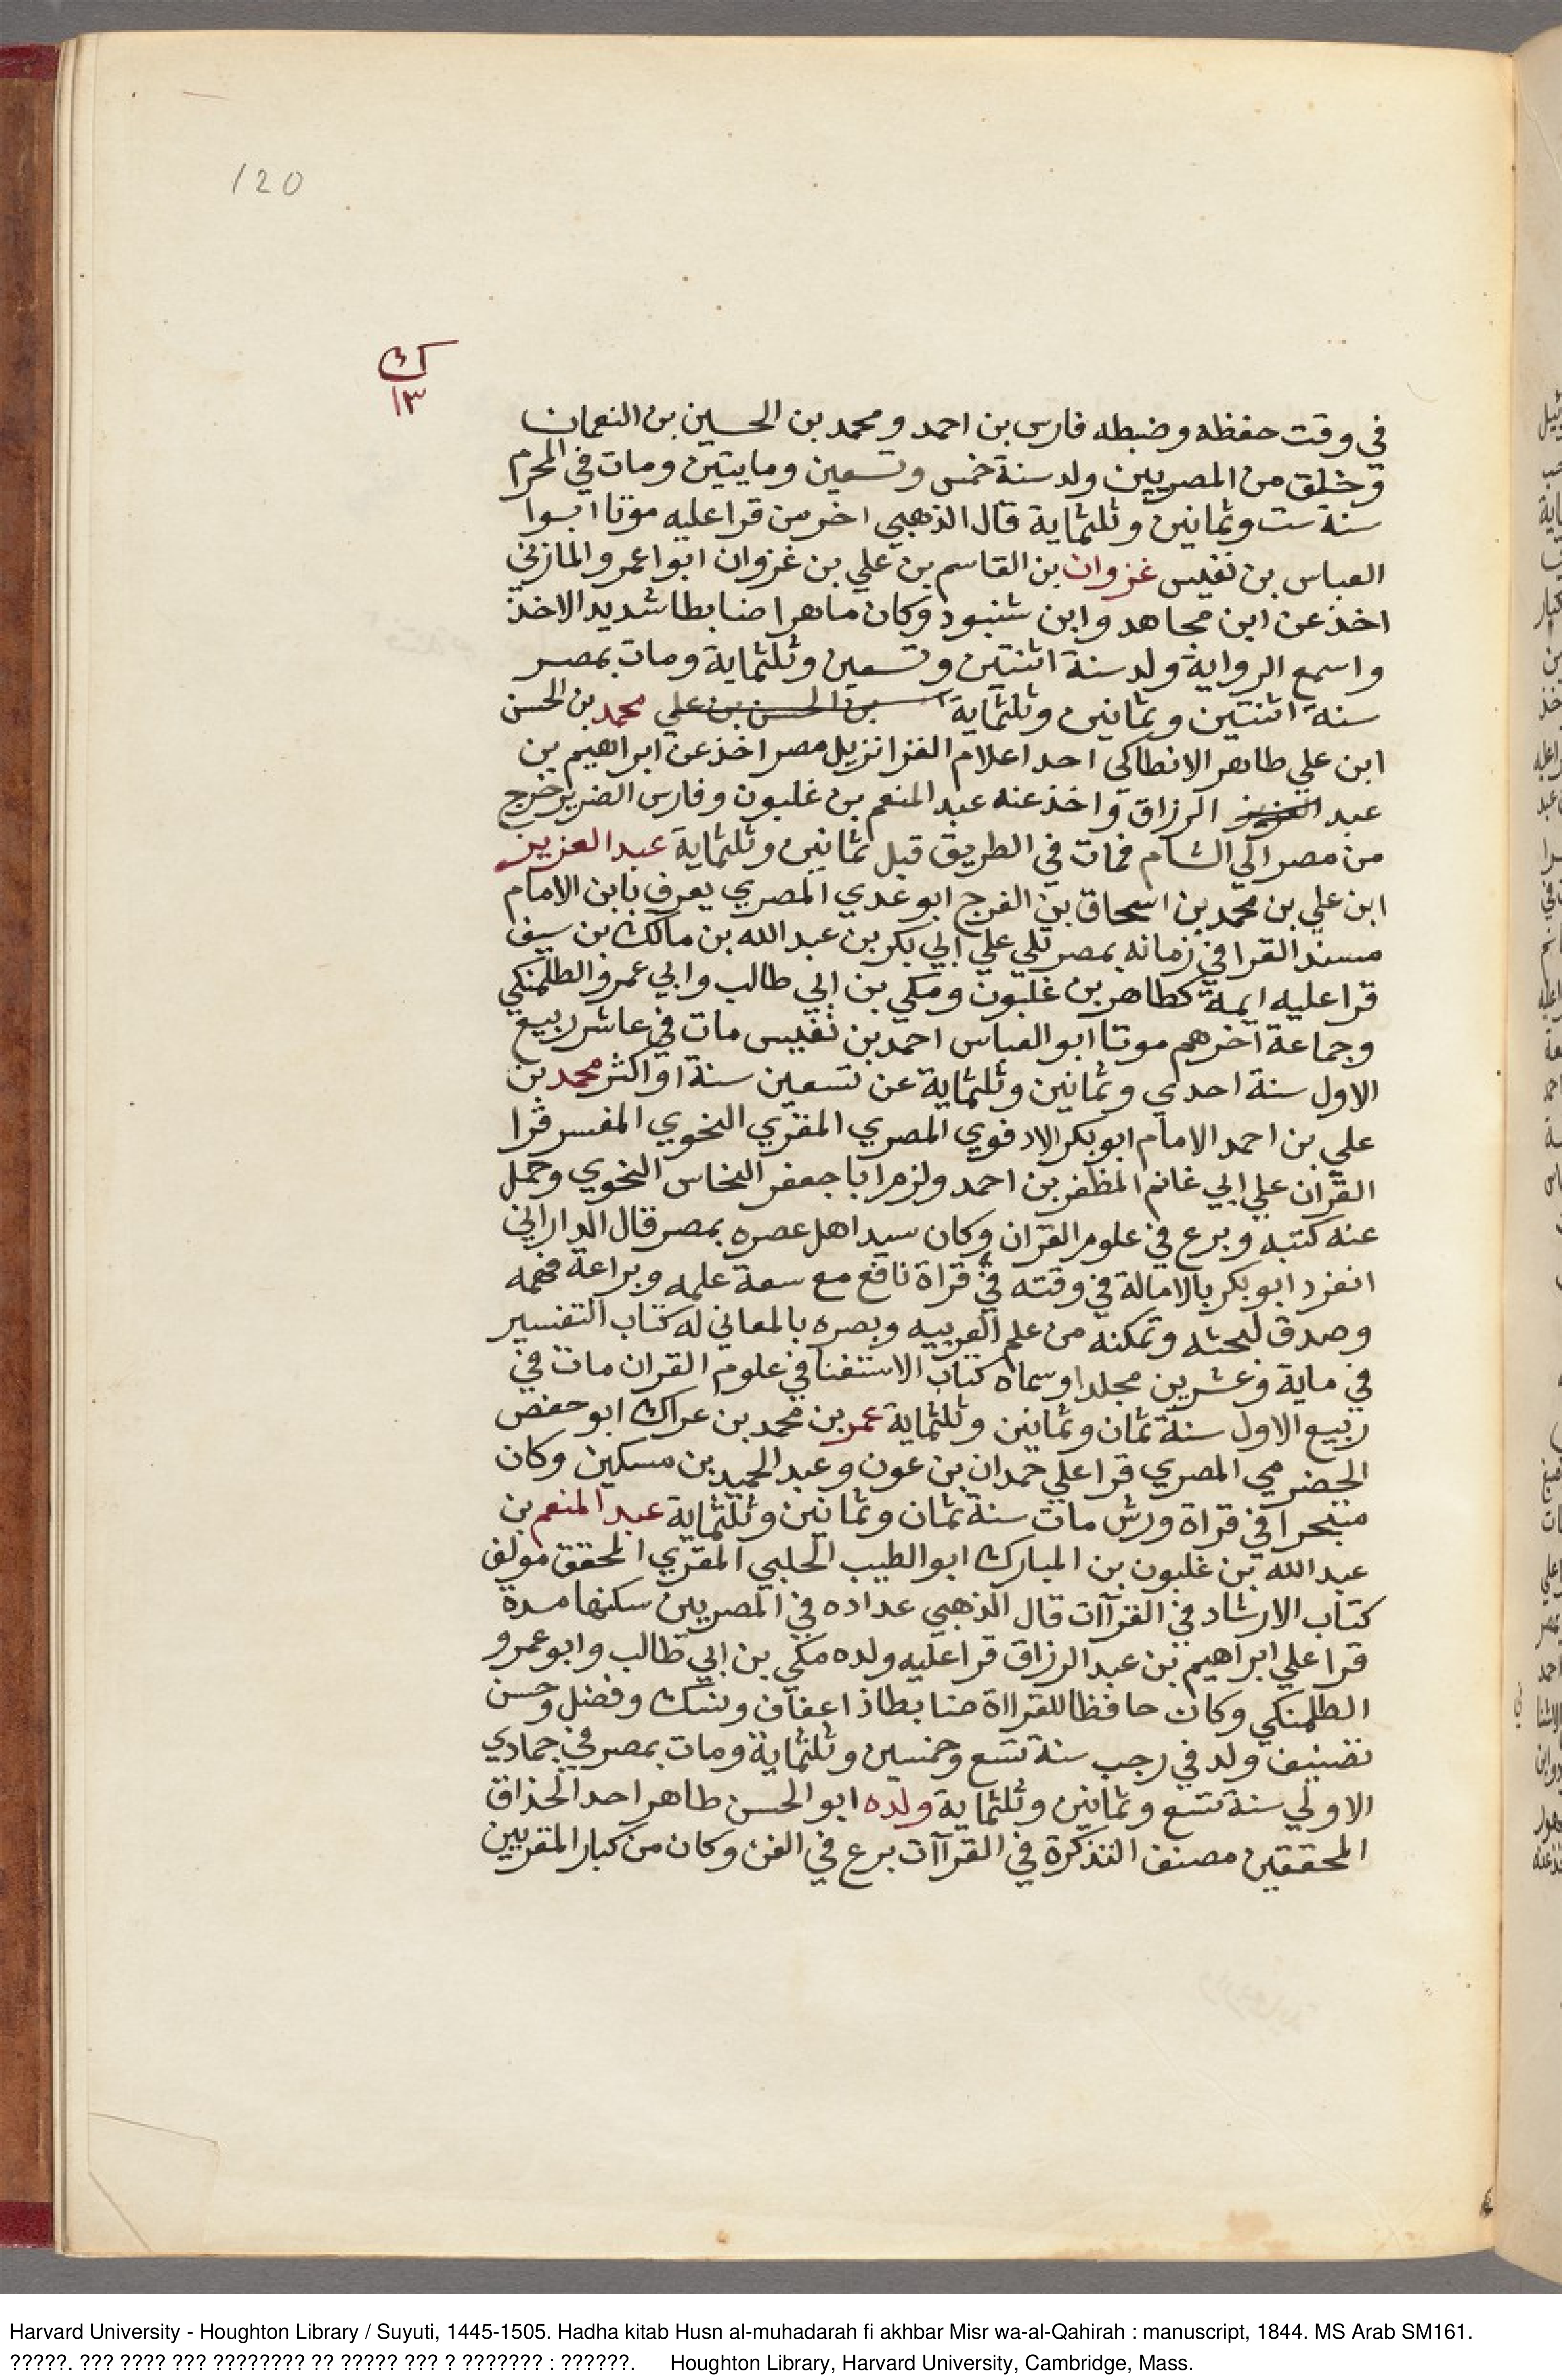 120
ك
١٣
في وقت حفظه وضبطه فارس بن احمد ومحمد بن الحسين بن النعمان
وخلق من المصريين ولد سنة خمس وتسعين ومايتين ومات في المحرم
سنة ست وثمانين وثلثماية قال الذهبي اخر من قرا عليه موتا ابوا
العباس بن نفيس غزوان بن القاسم بن علي بن غزوان ابوا عمرو المازني
اخذ عن ابن مجاهد وابن شنبود وكان ماهرا ضابطا شديد الاخذ
واسمع الرواية ولد سنة اثنتين وتسعين وثلثماية ومات بمصر
سنة اثنتين وثمانين وثلثماية بن الحسن بن علي محمد بن الحسن
ابن علي طاهر الانطاكي احد اعلام الفزا نزيل مصر اخذ عن ابراهيم بن
عبد العزيز الرزاق واخذ عنه عبد المنعم بن غلبون وفارس الضرير خرج
من مصر الي الشام فمات في الطريق قبل ثمانين وثلثماية عبد العزيز
ابن علي بن محمد بن اسحاق بن الفرج ابو عدي المصري يعرف بابن الامام
مسند القرا في زمانه بمصر تلي علي ابي بكر بن عبد الله بن مالك بن سيف
قرا عليه ايمة كطاهر بن غلبون ومكي بن ابي طالب وابي عمرو الطلمنكي
وجماعة آخرهم موتا ابو العباس احمد بن نفيس مات في عاشر ربيع
الاول سنة احدي وثمانين وثلثماية عن تسعين سنة او اكثر محمد بن
علي بن احمد الامام ابو بكر الادفوي المصري المقري النحوي المفسر قرا
القران علي ابي غانم المظفر بن احمد ولزم ابا جعفر النحاس النحوي وحمل
عنه كتبه وبرع في علوم القران وكان سيد اهل عصره بمصر قال الداراني
انفرد ابو بكر بالامالة في وقته في قراة نافع مع سعة علمه وبراعة فهمه
وصدق لحثه وتمكنه من علم العربيه وبصره بالمعاني له كتاب التفسير
في ماية وعشرين مجلدا وسماه كتاب الاستفنا في علوم القران مات في
ربيع الاول سنة ثمان وثمانين وثلثماية عمر بن محمد بن عراك ابو حفص
الحضرمي المصري قرا علي حمدان بن عون وعبد الحميد بن مسكين وكان
متبحرا في قراة ورش مات سنة ثمان وثمانين وثلثماية عبد المنعم بن
عبد الله بن غلبون بن المبارك ابو الطيب الحلبي المقري المحقق مولف
كتاب الارشاد في القرآات قال الذهبي عداده في المصريين سكنها مدة
قرا علي ابراهيم بن عبد الرزاق قرا عليه ولده مكي بن ابي طالب وابو عمرو
الطلمنكي وكان حافظا للقرااة ضابطا ذا عفاف ونسك وفضل وحسن
تصنيف ولد في رجب سنة تسع وخمسين وثلثماية ومات بمصر في جمادي
الاولي سنة تسع وثمانين وثلثماية ولده ابو الحسن طاهر احد الحذاق
المحققين مصنف التذكرة في القرآات برع في الفن وكان من كبار المقريين
Harvard University - Houghton Library / Suyuti, 1445-1505. Hadha kitab Husn al-muhadarah fi akhbar Misr wa-al-Qahirah : manuscript, 1844. MS Arab SM161.
?????. ??? ???? ??? ???????? ?? ????? ??? ? ??????? : ??????. Houghton Library, Harvard University, Cambridge, Mass.